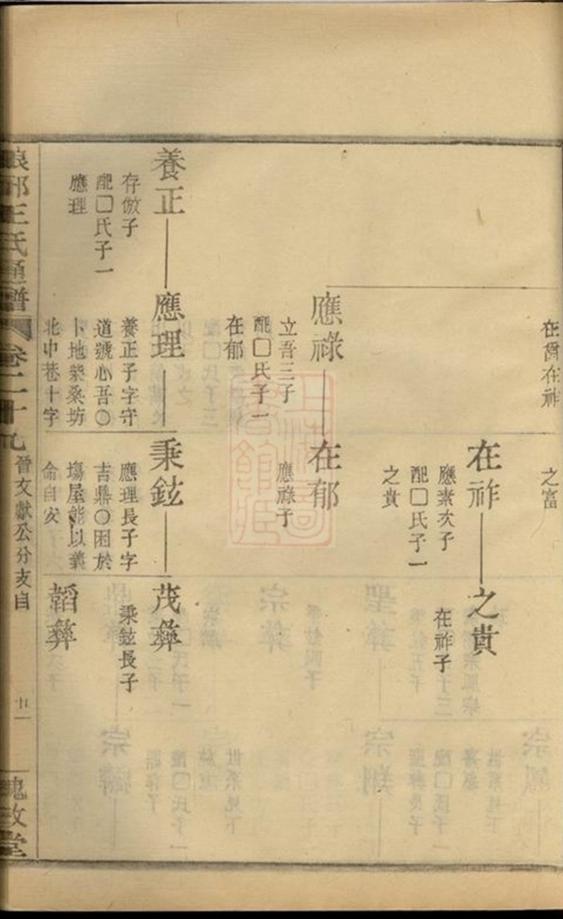 在啇在祚
之富
在祚
應素次子
配□氏子一
之貴
之貴
在祚子
應祿
立吾三子
配□氏子一
在郁
在郁
應祿子
養正
存倣子
配□氏子一
應理
應理
養正子字守
道號心吾○
卜地柴桑坊
北中巷十字
秉鉉
應理長子字
吉鼎○困於
塲屋能以義
命自安
茂彝
秉鉉長子
韜彝
琅邪王氏通譜
卷二十九
晉文獻公分支自
槐政堂